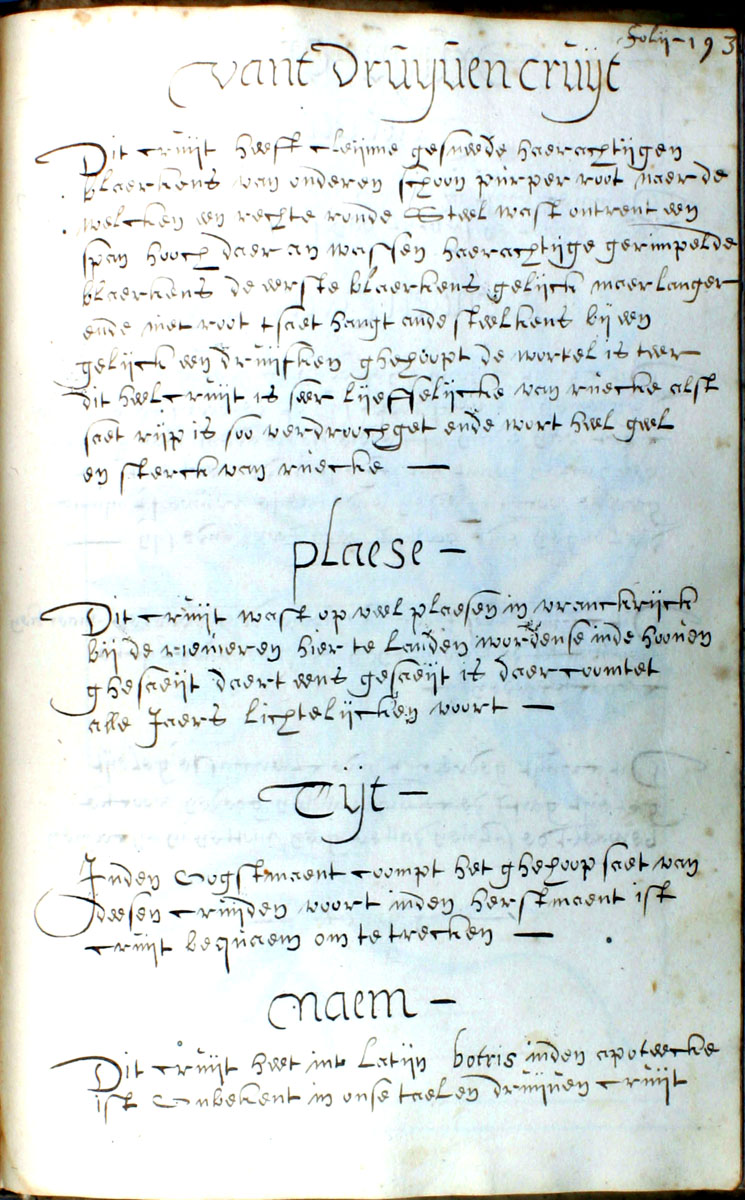 Folij - 193
vant druÿuen cruijt
Dit cruijt heeft cleijnne gesnede haerachtijgen
blaerkens van onderen schoon purper root naer de
welcken een rechte ronde Steel wast ontrent een
span hooch daer an wassen haerachtijge gerimpelde
blaerkens de eerste blaerkens gelijck maer langer
ende niet root tsaet hangt ande steelkens bij een
gelijck een druijfken ghehoopt de wortel is teer
dit heel cruijt is seer lijeffelijcke van ruecke alst
saet rijp is soo verdroochget ende wort heel geel
en sterck van ruecke —
plaese —
Dit cruijt wast op veel plaesen in vranckrijck
bij de riemeren hier te landen wordense inde hoouen
ghesaeijt daert eens gesaeijt is daer coomtet
alle Jaers lichtelijcken voort —
Tijt —
Inden Oogstmaent coompt het ghehoop saet van
deesen cruijden voort inden herstmaent ist
cruijt bequaem om te trecken —
naem —
Dit cruijt heet int Latijn botris inden apoteecke
ist Onbekent in onse taelen druijuen cruijt